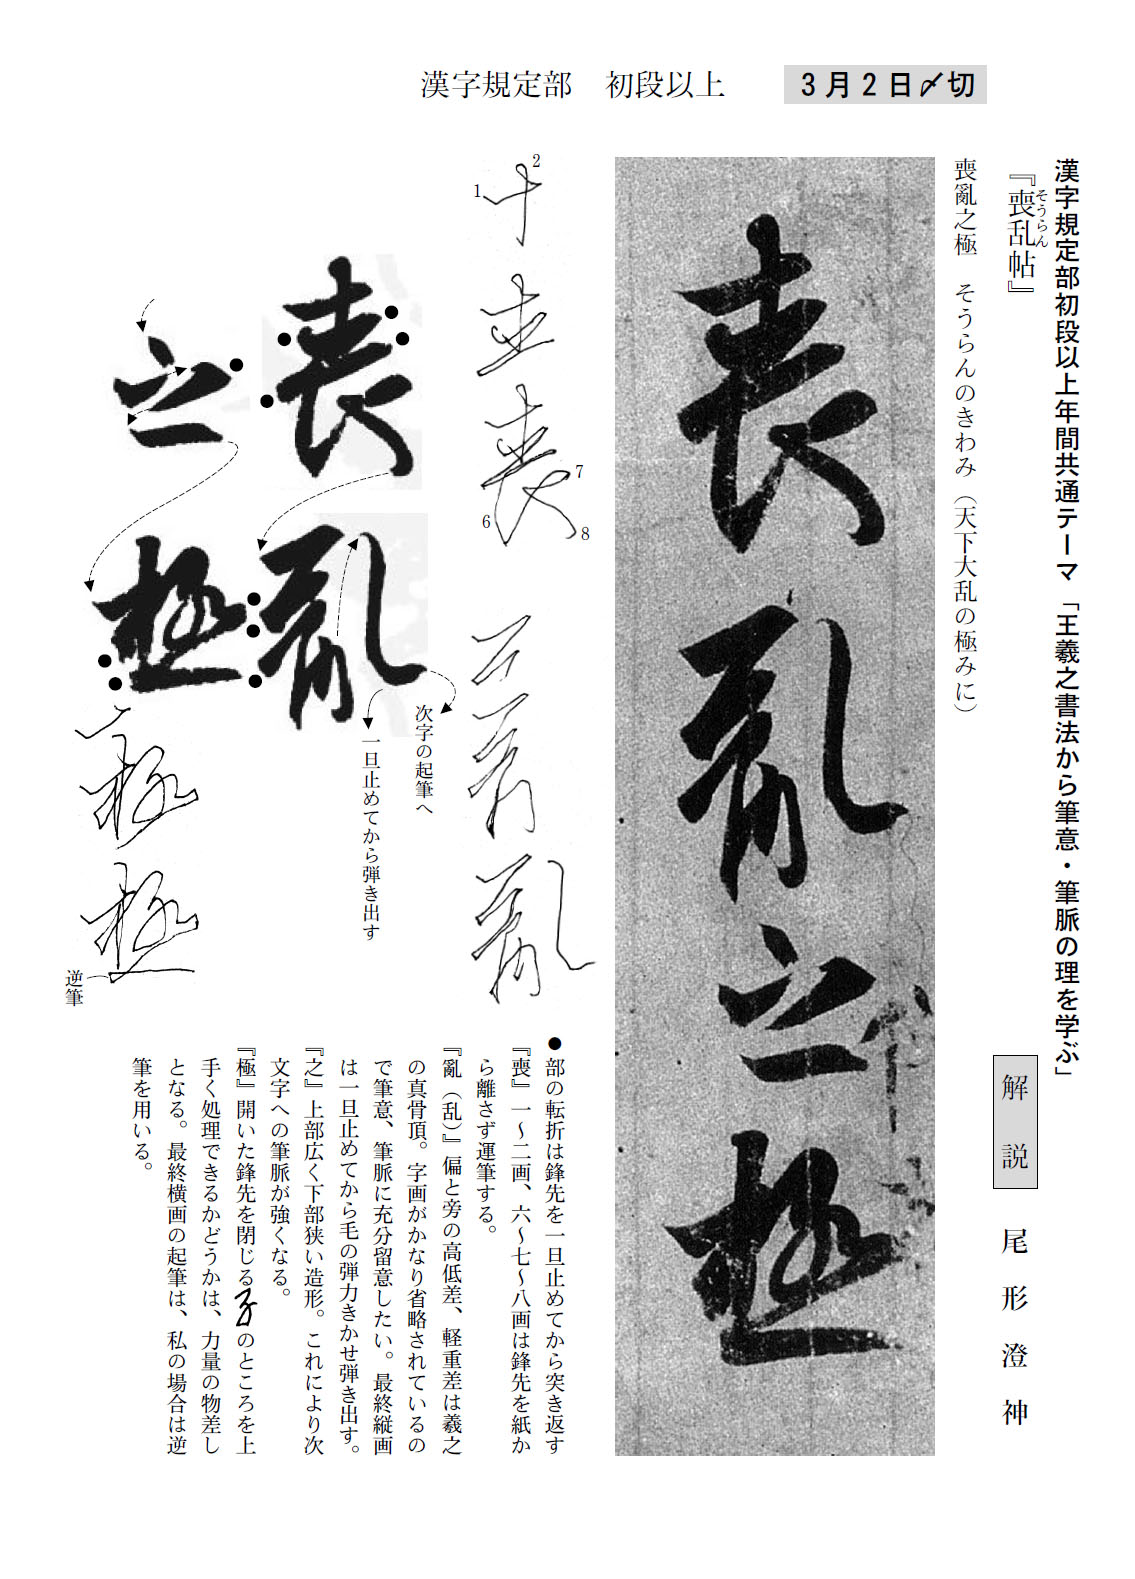 漢字規定部　初段以上　3月2日〆切
漢字規定部初段以上年間共通テーマ「王羲之書法から筆意・筆脈の理を学ぶ」
『喪乱帖』
そうらん
解説　尾形澄神
喪亂之極　そうらんのきわみ（天下大乱の極みに）
喪亂之極
1
2
6
7
8
喪亂
之極
次字の起筆へ
一旦止めてから弾き出す
逆筆
●部の転折は鋒先を一旦止めてから突き返す
『喪』一〜二画、六〜七〜八画は鋒先を紙か
ら離さず運筆する。
『亂（乱）』偏と旁の高低差、軽重差は羲之
の真骨頂。字画がかなり省略されているの
で筆意、筆脈に充分留意したい。最終縦画
は一旦止めてから毛の弾力きかせ弾き出す。
『之』上部広く下部狭い造形。これにより次
文字への筆脈が強くなる。
『極』開いた鋒先を閉じるのところを上
手く処理できるかどうかは、力量の物差し
となる。最終横画の起筆は、私の場合は逆
筆を用いる。